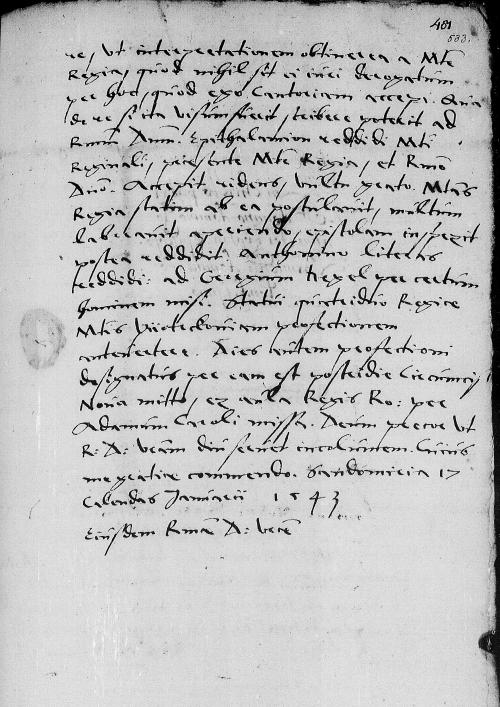 481
583.
re, Vt interpretationem obtinerea a Mte
Regia, quod nihil sit ei iuri derogatum
per hoc, quod ego Cantoriam accepi. Qua
de re si ita Visum fuerit, scribere poterit ad
Rmum Dnum. Epithalamion reddidi Mti
Reginali, praesente Mte Regia, et Rmo
Dno. Accepit ridens, vultu grato. Mtas
Regia statim ab ea postulavit, multum
laboravit aperiendo, epistolam inspexit
postea reddidit. Anthonino literas
reddidi: ad Georgium Hegel per certum
hominem misi. Statui quatriduo Regiae
Mtis profectionem
antevertere. Dies autem profectioni
designatus per eam est postridie Circumcis
Nova mitto, ex aula Regis Ro: per
Adamum Caroli missa. Deum precor Vt
R: D: Vram diu servet incolumem. Cuius
me gratiae commendo. Sandomiria 17
Calendas Januarii 1543
Eiusdem Rmae D: Vrae